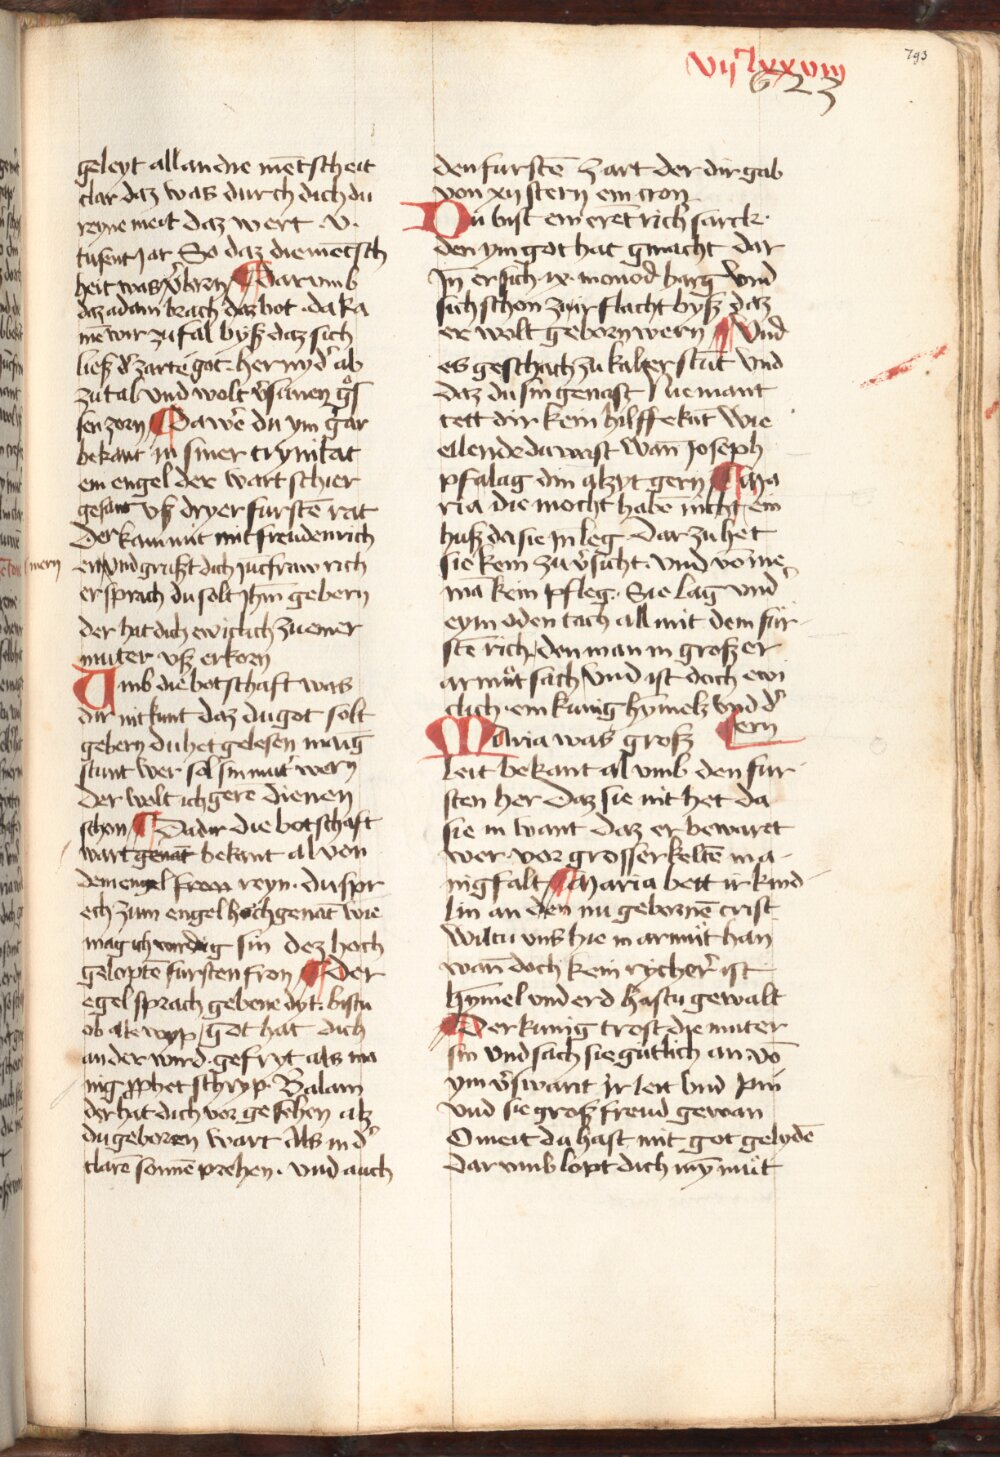 793
vijᶜlxxviij
623
geleyt all an die mētscheit
clar daz was durch dich du
reyne meit daz wert .v.
tusent Jar So daz die mētsch
heit was v̓lorn Darvmb
daz adam brach daz bot . da ka
mē wir zu fal byß daz sich
ließ d̓ zarte got. her nyd̓ ab
zu tal vnd wolt v̓sunen gͦs
sen zorn Da wē du ym gar
bekant in siner trynitat
ein engel der wart schier
gesant vß dryer furstē rat
Der kam mit mit freuden rich
ern vnd grußt dich Jūcfraw rich
er sprach du solt Jhm̄ gebern
der hat dich ewiclich zu einer
muter vß erkorn
Umb die botschaft was
dir nit kunt daz du got solt
gebern du het gelesen manig
stunt wer sol sin mut̓ wern
Der wolt ich gere dienen
schon Da dir die botschaft
wart genāt bekant al von
dem engel fron reyn . du spr
ech zum engel hochgenāt wie
mag ich wirdig sin dez hoch
geloptē fursten fron Der
egel sprach gebenedyt: bistu
ob alle wyp got hat dich
an der wird . gefryt als ma
nig pphet schryp . Balam
der hat dich vor gesehen alz
du geboren wart Als in d̓
clarē sonnē prehen . vnd auch
den furstē zart der dir gab
von xij stern ein cron
Du bist ein eret rich sarck .
den ym got hat gmacht dar
Jn̄ er sich .ix. monod barg vnd
sich schon zu ir flacht byß daz
er wolt geborn wern Vnd
es geschach zu kalter stūt vnd
daz du sin genast Niemant
tett dir kein hilffe kūt wie
ellende da wast wan Joseph
pflag din alzyt gern Ma
ria die mocht habē nicht ein
huß da sie Jn̄ leg Dar zu het
sie kein zu v̓sicht . vnd vō nie
mā kein pfleg . Sie lag vnd̓
eym oden tach all mit dem fur
stē rich, den man in großer
armüt sach vnd ist doch ewi
clich . ein kunig hymelz vnd d̓
ern
Maria was groß
leit bekant al vmb den fur
sten her Daz sie nit het da
sie in want daz er bewaret
wer . vor grosser keltē ma
nigfalt Maria bett ir kind
lin an den nu gebornē crist
Wiltu vns hie in armüt han
wan doch kein rycher̓ ist
hymel vnd erd hastu gewalt
Der kunig trost die muter
sin vnd sach sie gütlich an vō
ym v̓swant Jr leit vnd pin
vnd sie groß freud gewan
O meit du hast mit got gelydē
Dar vmb lopt dich mȳ müt